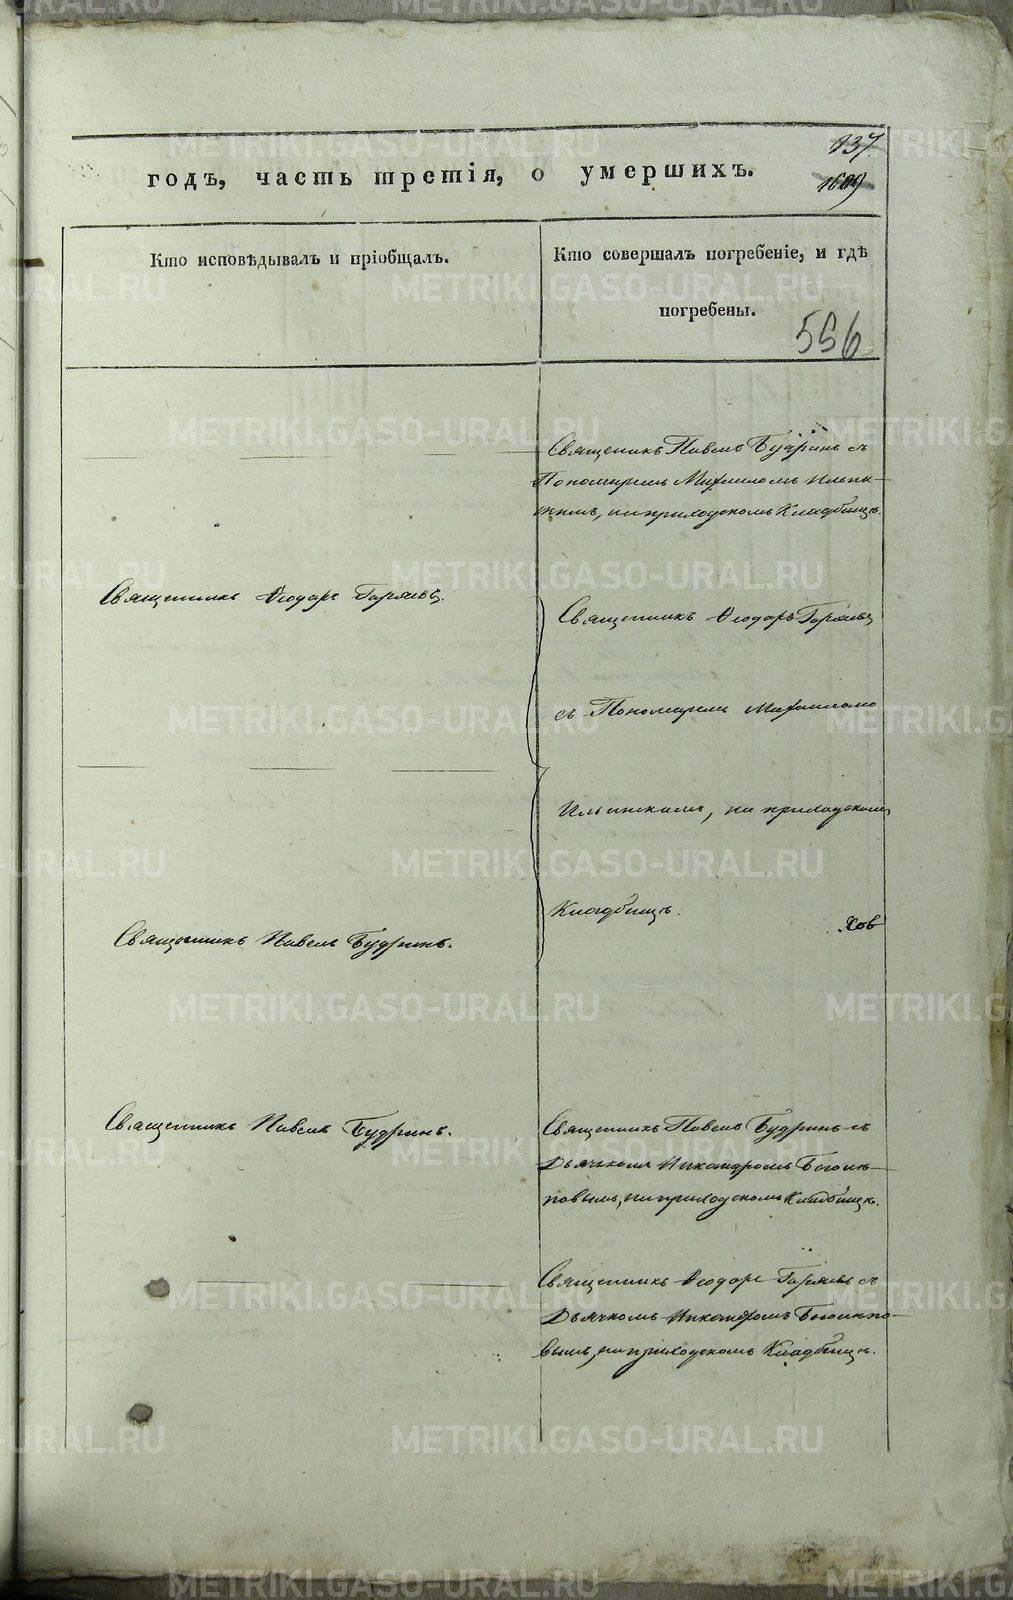 137.
годъ, часть третія, о умершихъ.
1609
Кто исповѣдывалъ и пріобщалъ.
Кто совершалъ погребеніе, и гдѣ
погребены.
556
Священикъ Павелъ Будринъ съ
Пономаремъ Михаиломъ Ильин-
скимъ, на приходскомъ Кладбищѣ.
Священникъ Ѳеодоръ Горяевъ.
Священникъ Ѳеодоръ Горяевъ
съ Пономаремъ Михаиломъ
Ильинскимъ, на приходскомъ
Кладбищѣ.
Хов
Священникъ Павелъ Будринъ.
Священникъ Павелъ Будринъ.
Священникъ Павелъ Будринъ съ
Дьячкомъ Никандромъ Боголѣ-
повымъ, на приходскомъ Кладбищѣ.
Священникъ Ѳеодоръ Горяевъ съ
Дьячкомъ Никандромъ Боголѣпо-
вымъ, на приходскомъ Кладбищѣ.
METRIKI.GASO-URAL.RU